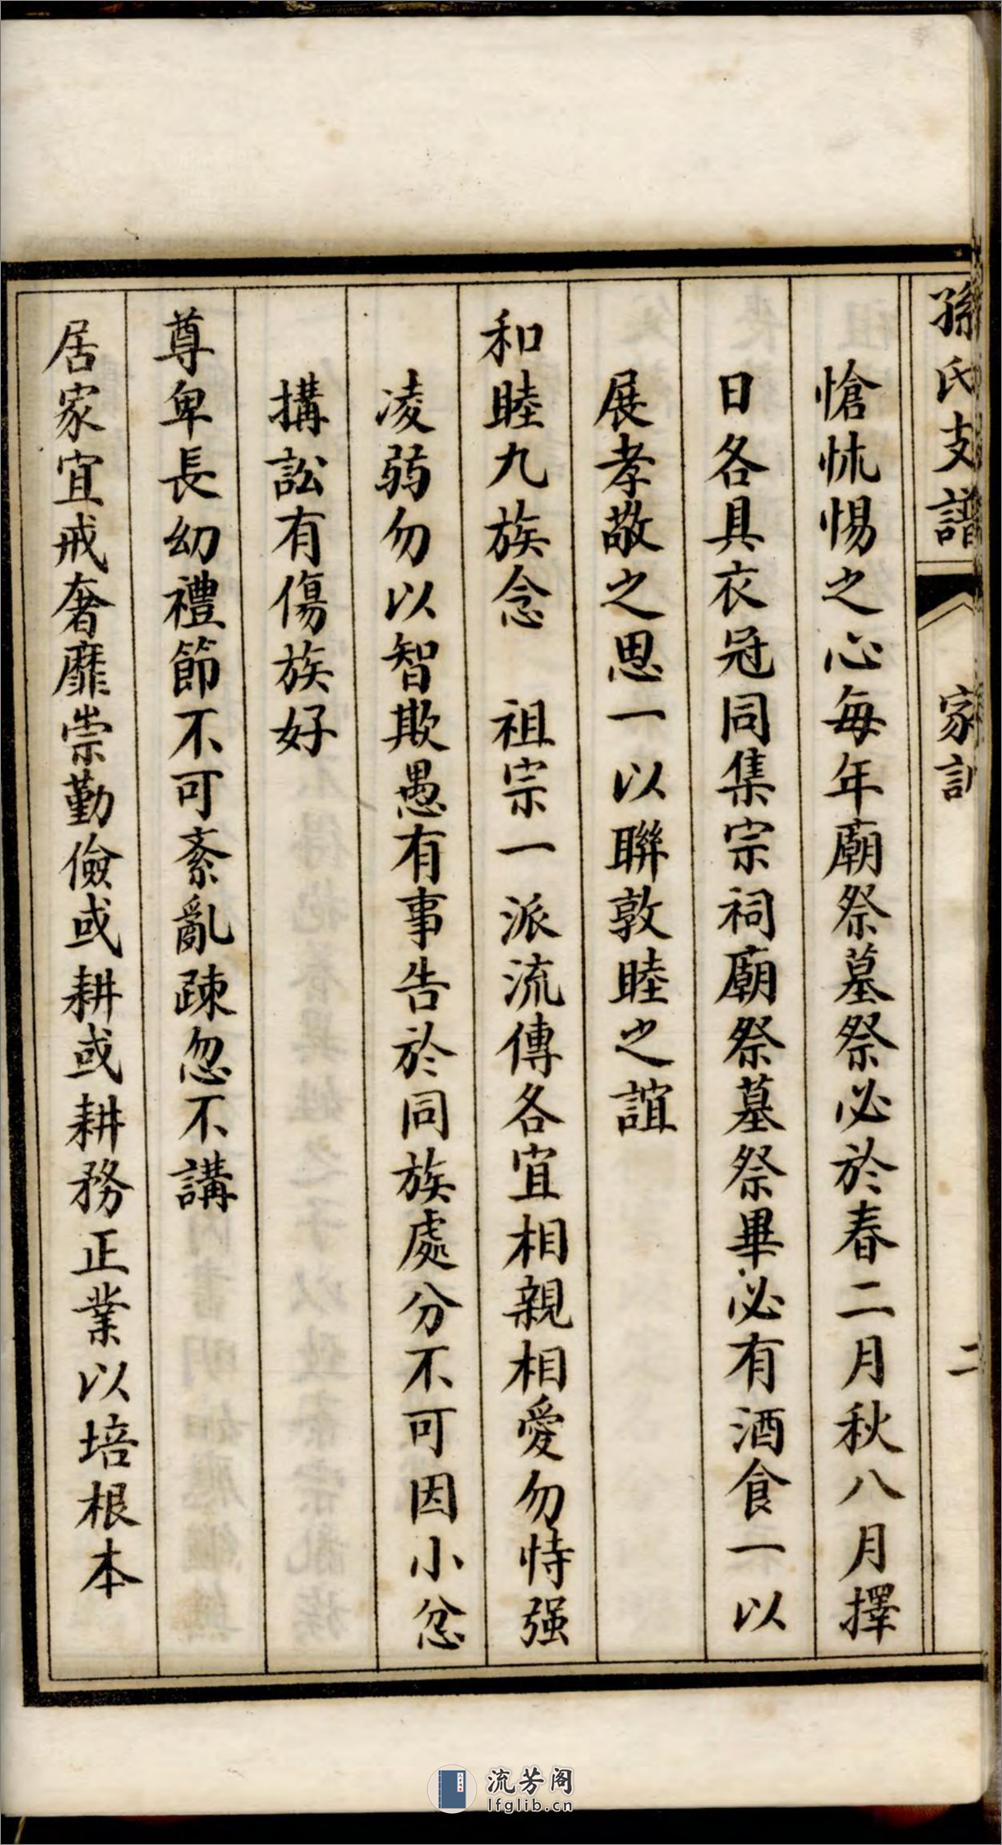 孫氏支譜
家訓
二
愴怵惕之心每年廟祭墓祭必於春二月秋八月擇
日各具衣冠同集宗祠廟祭墓祭畢必有酒食一以
展孝敬之思一以聯敦睦之誼
和睦九族念　祖宗一派流傳各宜相親相愛勿恃强
凌弱勿以智欺愚有事告於同族處分不可因小忿
搆訟有傷族好
尊卑長幼禮節不可紊亂疎忽不講
居家宜戒奢靡崇勤儉或耕或耕務正業以培根本
流芳阁
lfglib.cn